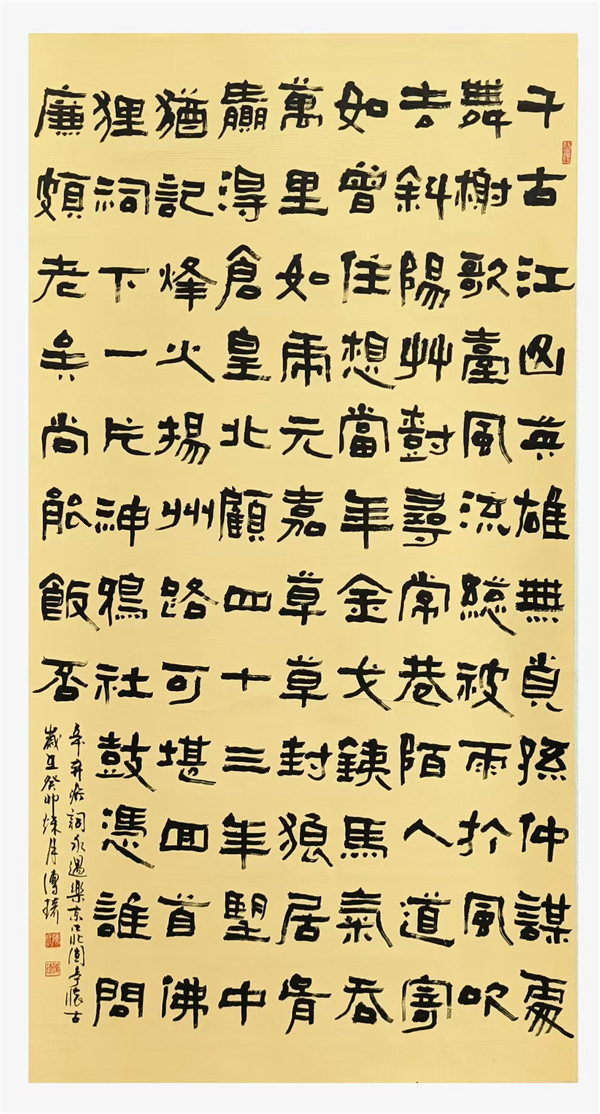 千古江山英雄無覓孫仲謀處
舞榭歌臺風流總被雨打風吹
去斜陽艸尌尋常巷陌人道寄
如曾住想當年金戈銕馬氣吞
萬里如虎元嘉草草封狼居胥
贏得倉皇北顧四十三年望中
猶記烽火揚州路可堪回首佛
狸祠下一片神鴉社鼓憑誰問
廉頗老矣尚能飯否
辛弃疾詞永遇樂京口北固亭懷古
歲在癸卯月傅